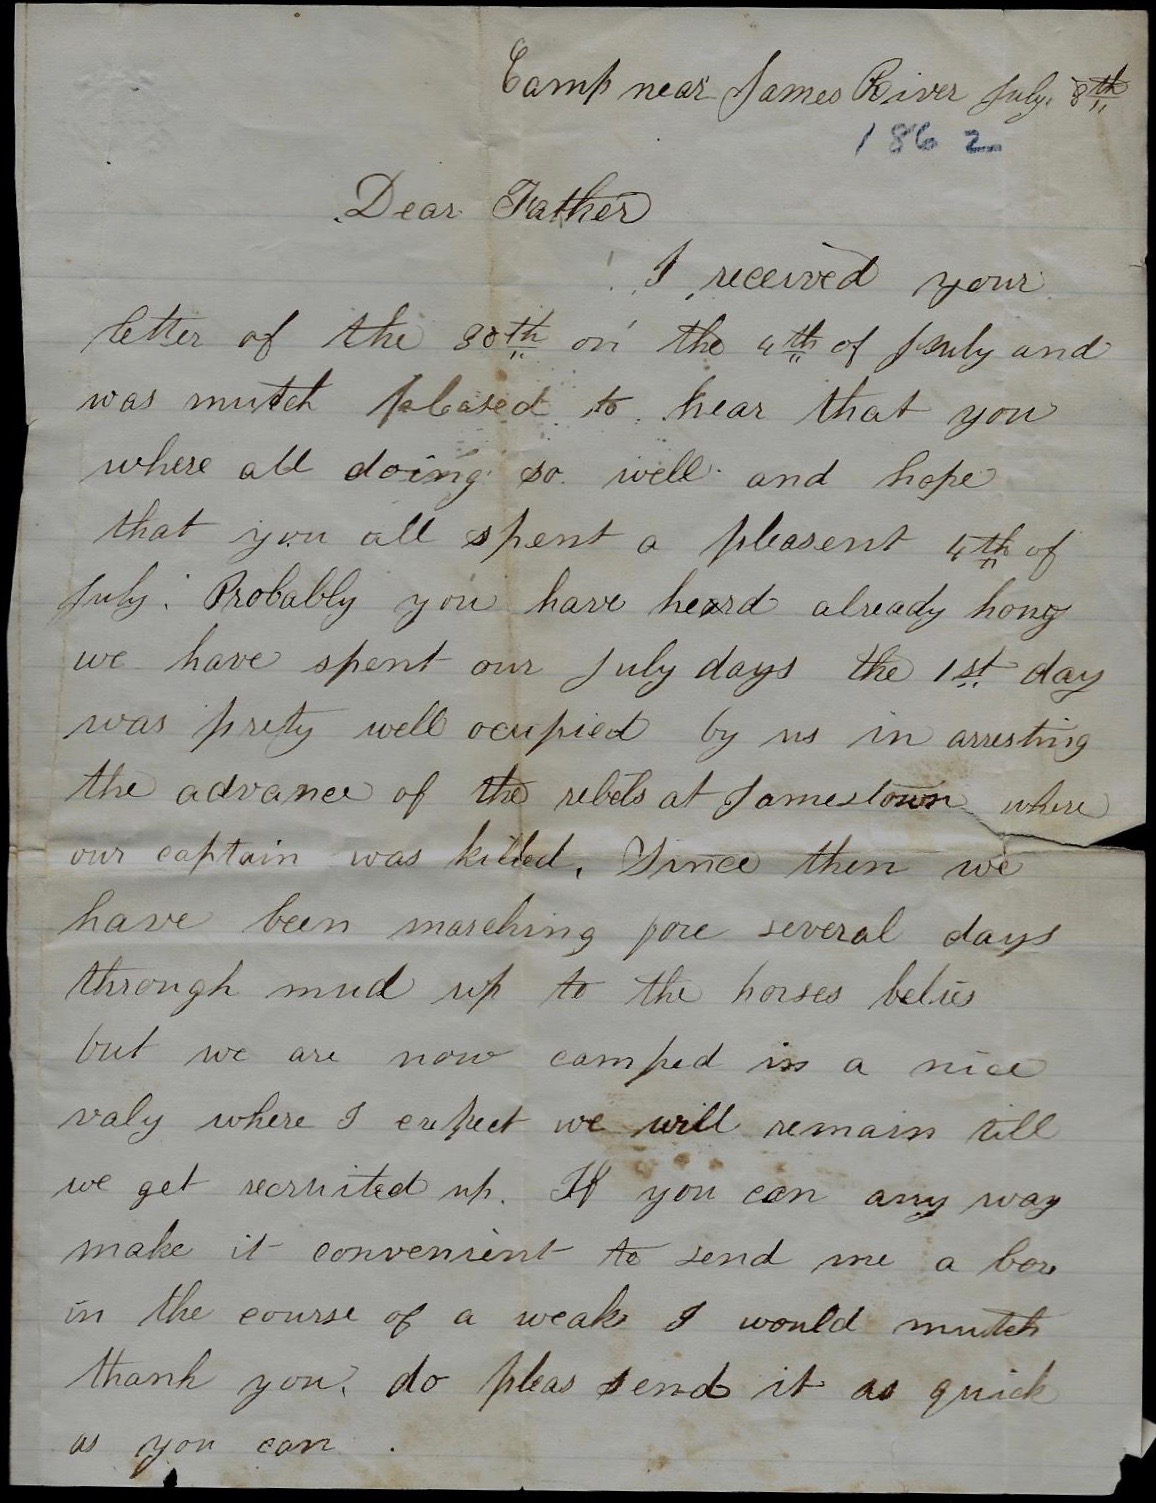 Camp near James River July. 8th
1862
Dear Father
I received your
letter of the 30th on the 4th of July and
was mutch pleased to hear that you
where all doing so well and hope
that you all spent a pleasent 4th of
July. Probably you have heard already how
we have spent our July days the 1st day
was prety well ocupied by us in arresting
the advance of the rebels at Jamestown where
our captain was killed. Since then we
have been marching fore several days
through mud up to the horses belies
but we are now camped in a nice
valy where I expect we will remain till
we get recruited up. If you can any way
make it convenient to send me a box
in the course of a weak I would mutch
thank you. do pleas send it as quick
as you can.